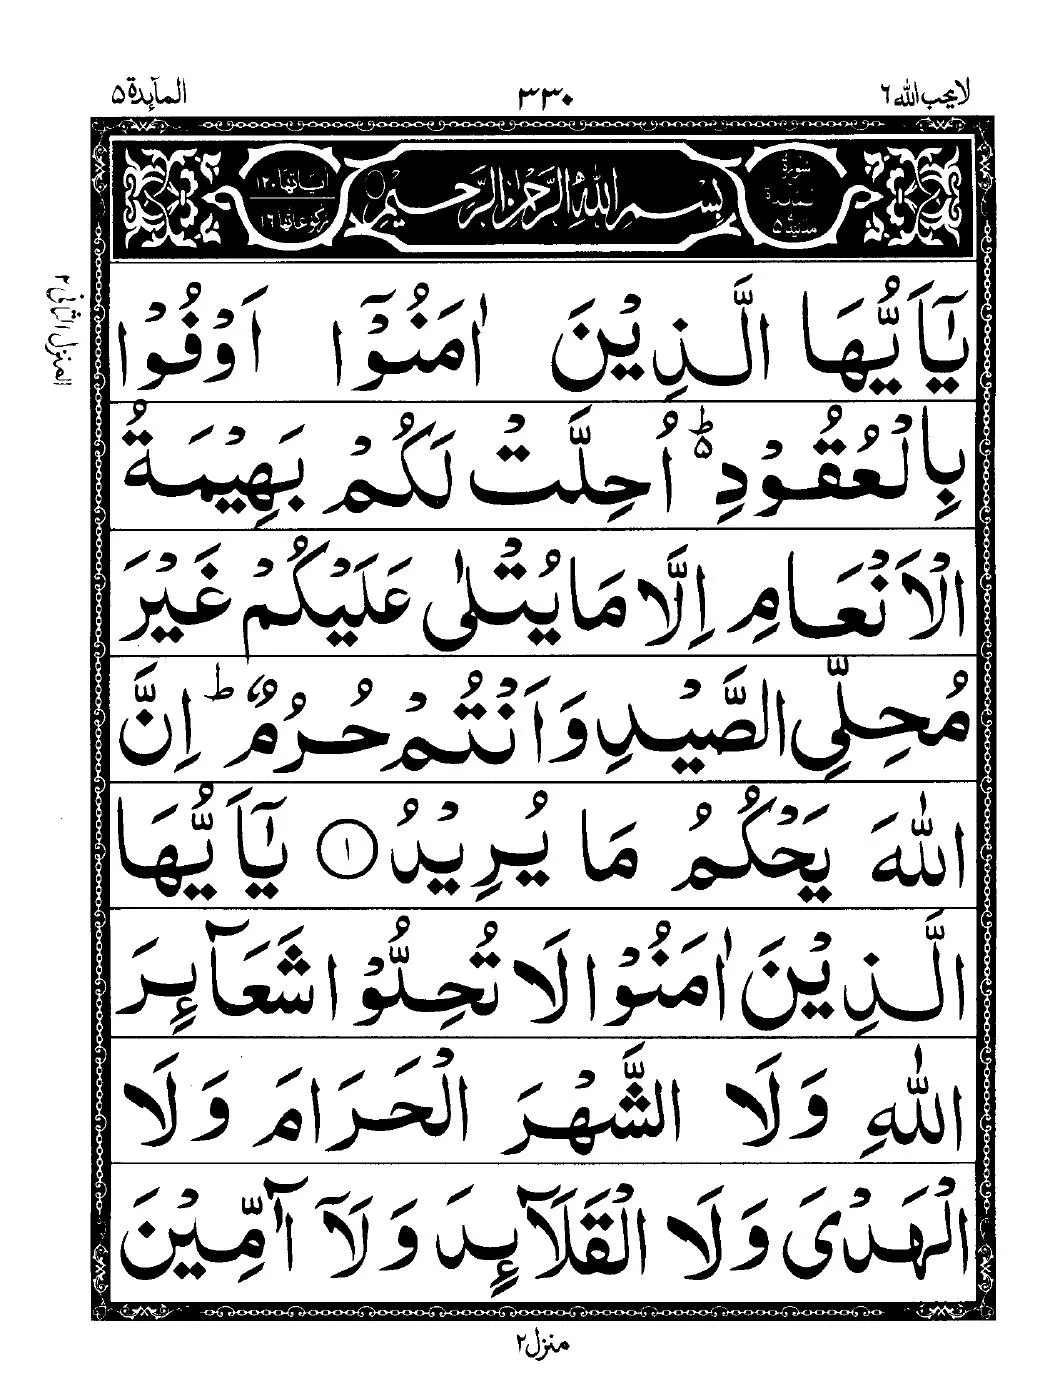 لا يحب الله ٦
٣٣٠
المآئدة ٥
سورة
مدنية ٥
بسم الله الرحمن الرحيم
اياتها ١٢٠
ركوعاتها ١٦
المنزل الثاني ٢
يٰٓاَيُّهَا الَّذِيْنَ اٰمَنُوْٓا اَوْفُوْا
بِالْعُقُوْدِ ۥؕ اُحِلَّتْ لَكُمْ بَهِيْمَةُ
الْاَنْعَامِ اِلَّا مَا يُتْلٰى عَلَيْكُمْ غَيْرَ
مُحِلِّى الصَّيْدِ وَاَنْتُمْ حُرُمٌ ؕ اِنَّ
اللّٰهَ يَحْكُمُ مَا يُرِيْدُ ١ يٰٓاَيُّهَا
الَّذِيْنَ اٰمَنُوْا لَا تُحِلُّوْا شَعَآئِرَ
اللّٰهِ وَلَا الشَّهْرَ الْحَرَامَ وَلَا
الْهَدْىَ وَلَا الْقَلَآئِدَ وَلَآ آمِّيْنَ
منزل ٢